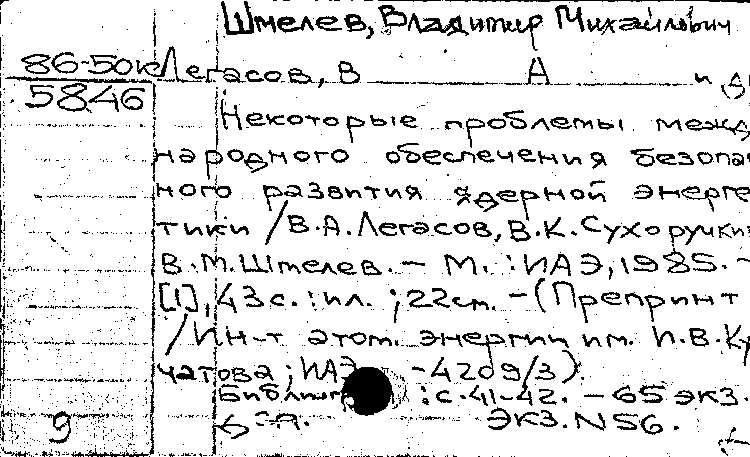 Шмелев, Владимир Михайлович
86-50к Легасов, В А и др
5846
Некоторые проблемы межд
народного обеспечения безопас
ного развития ядерной энерге
тики / В.А.Легасов, В.К.Сухоручкин
В.М.Шмелев. – М. : ИАЭ, 1985. –
[1], 43 с. : ил. ; 22 см. – (Препринт
/ Ин-т атом. энергии им. И.В.Ку
чатова ; ИАЭ -4209/3).
Библиогр : с.41-42. – 65 экз.
Экз. N 56.
9